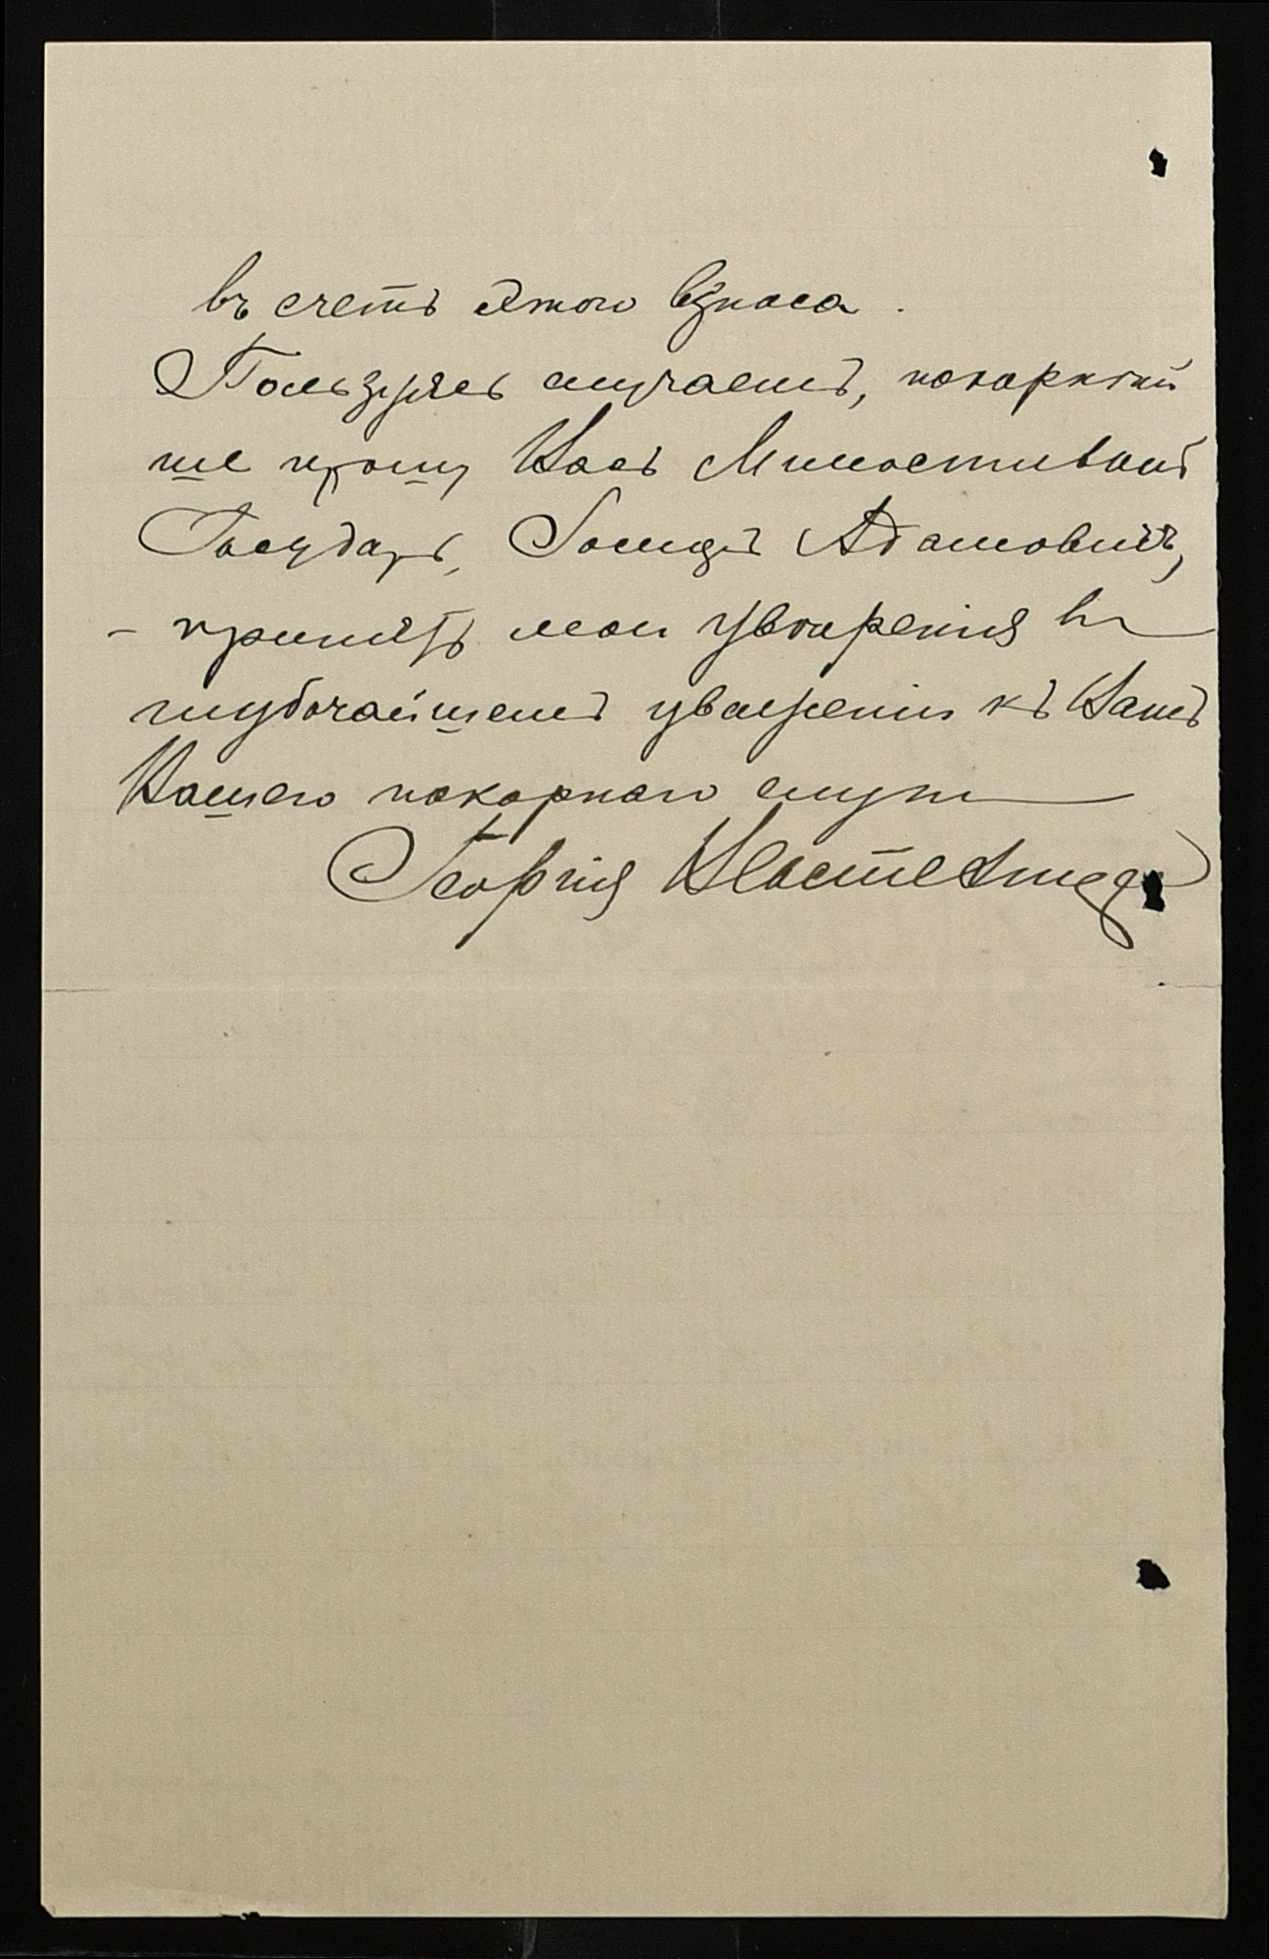 въ счетъ этого взноса.
Пользуясь случаемъ, покорнѣй
ше прошу Васъ Милостивый
Государь, Адамовичъ,
– принять мои увѣренія въ
глубочайшемъ уваженіи къ Вамъ
Вашего покорнаго слуги
Георгія